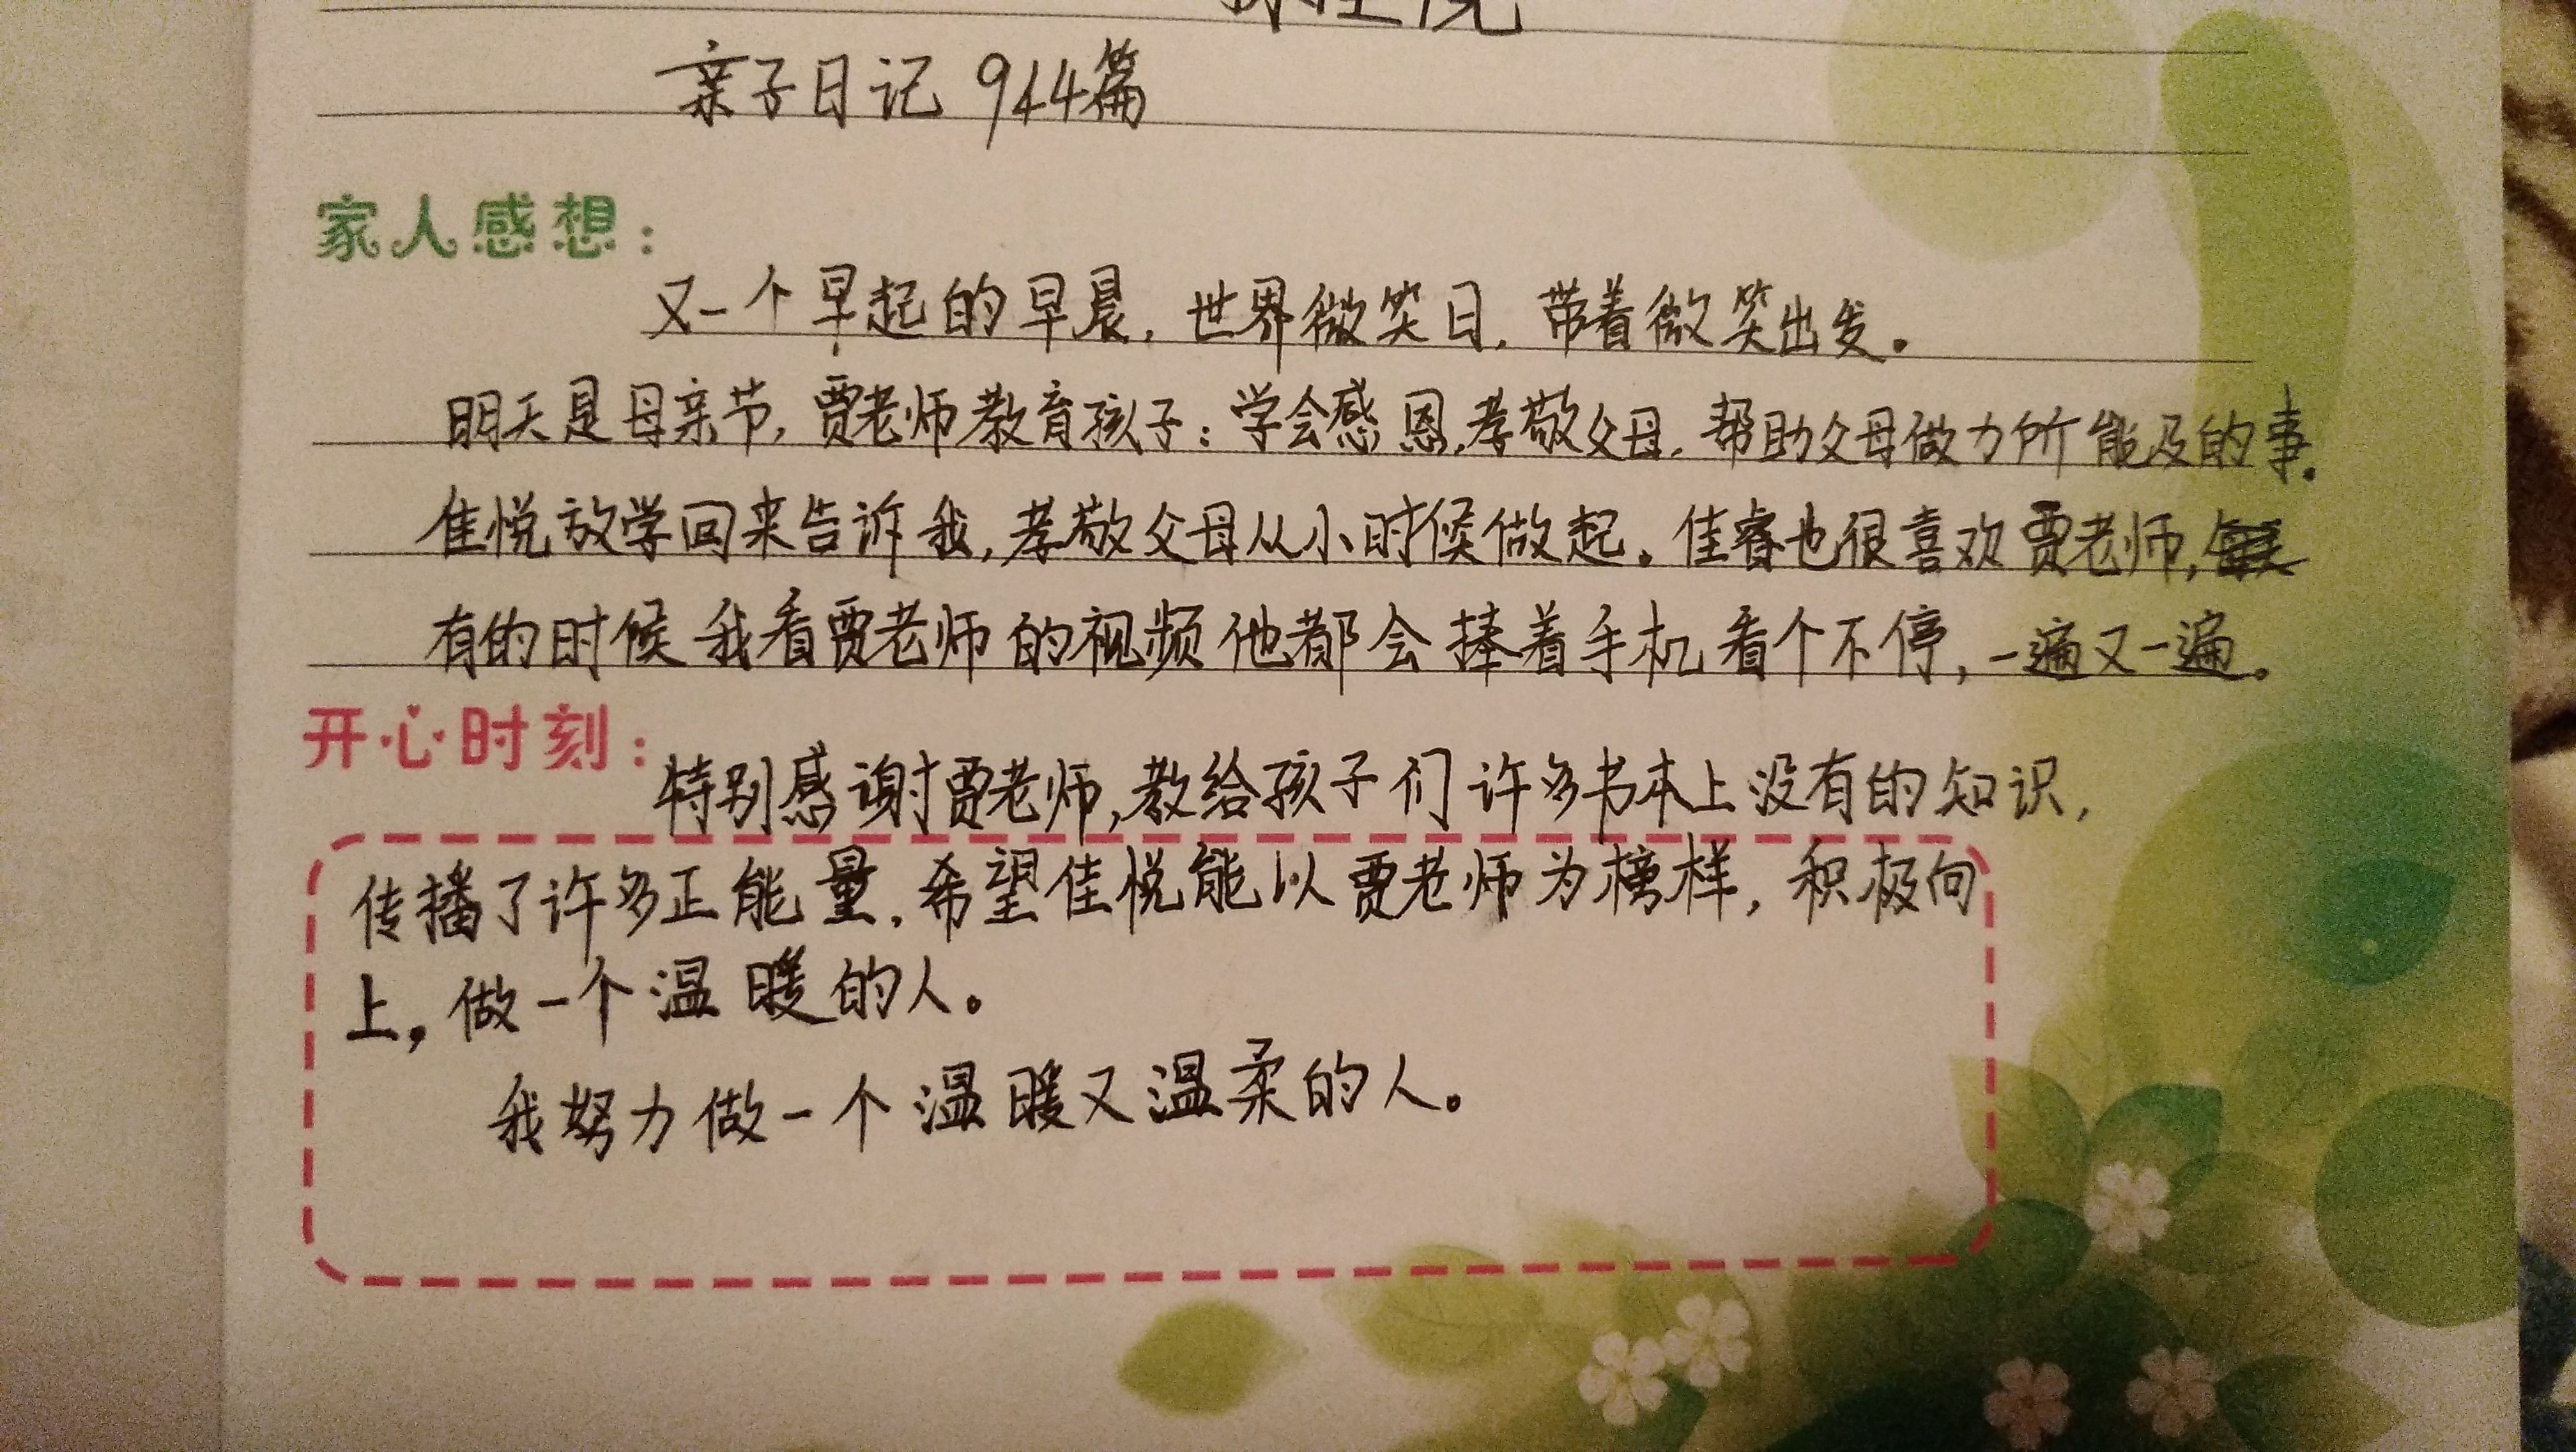 亲子日记 944篇
家人感想：
又一个早起的早晨，世界微笑日，带着微笑出发。
明天是母亲节，贾老师教育孩子：学会感恩，孝敬父母，帮助父母做力所能及的事。
佳悦放学回来告诉我，孝敬父母从小时候做起。佳睿也很喜欢贾老师，
有的时候我看贾老师的视频他都会捧着手机看个不停，一遍又一遍。
开心时刻：
特别感谢贾老师，教给孩子们许多书本上没有的知识，
传播了许多正能量，希望佳悦能以贾老师为榜样，积极向
上，做一个温暖的人。
我努力做一个温暖又温柔的人。